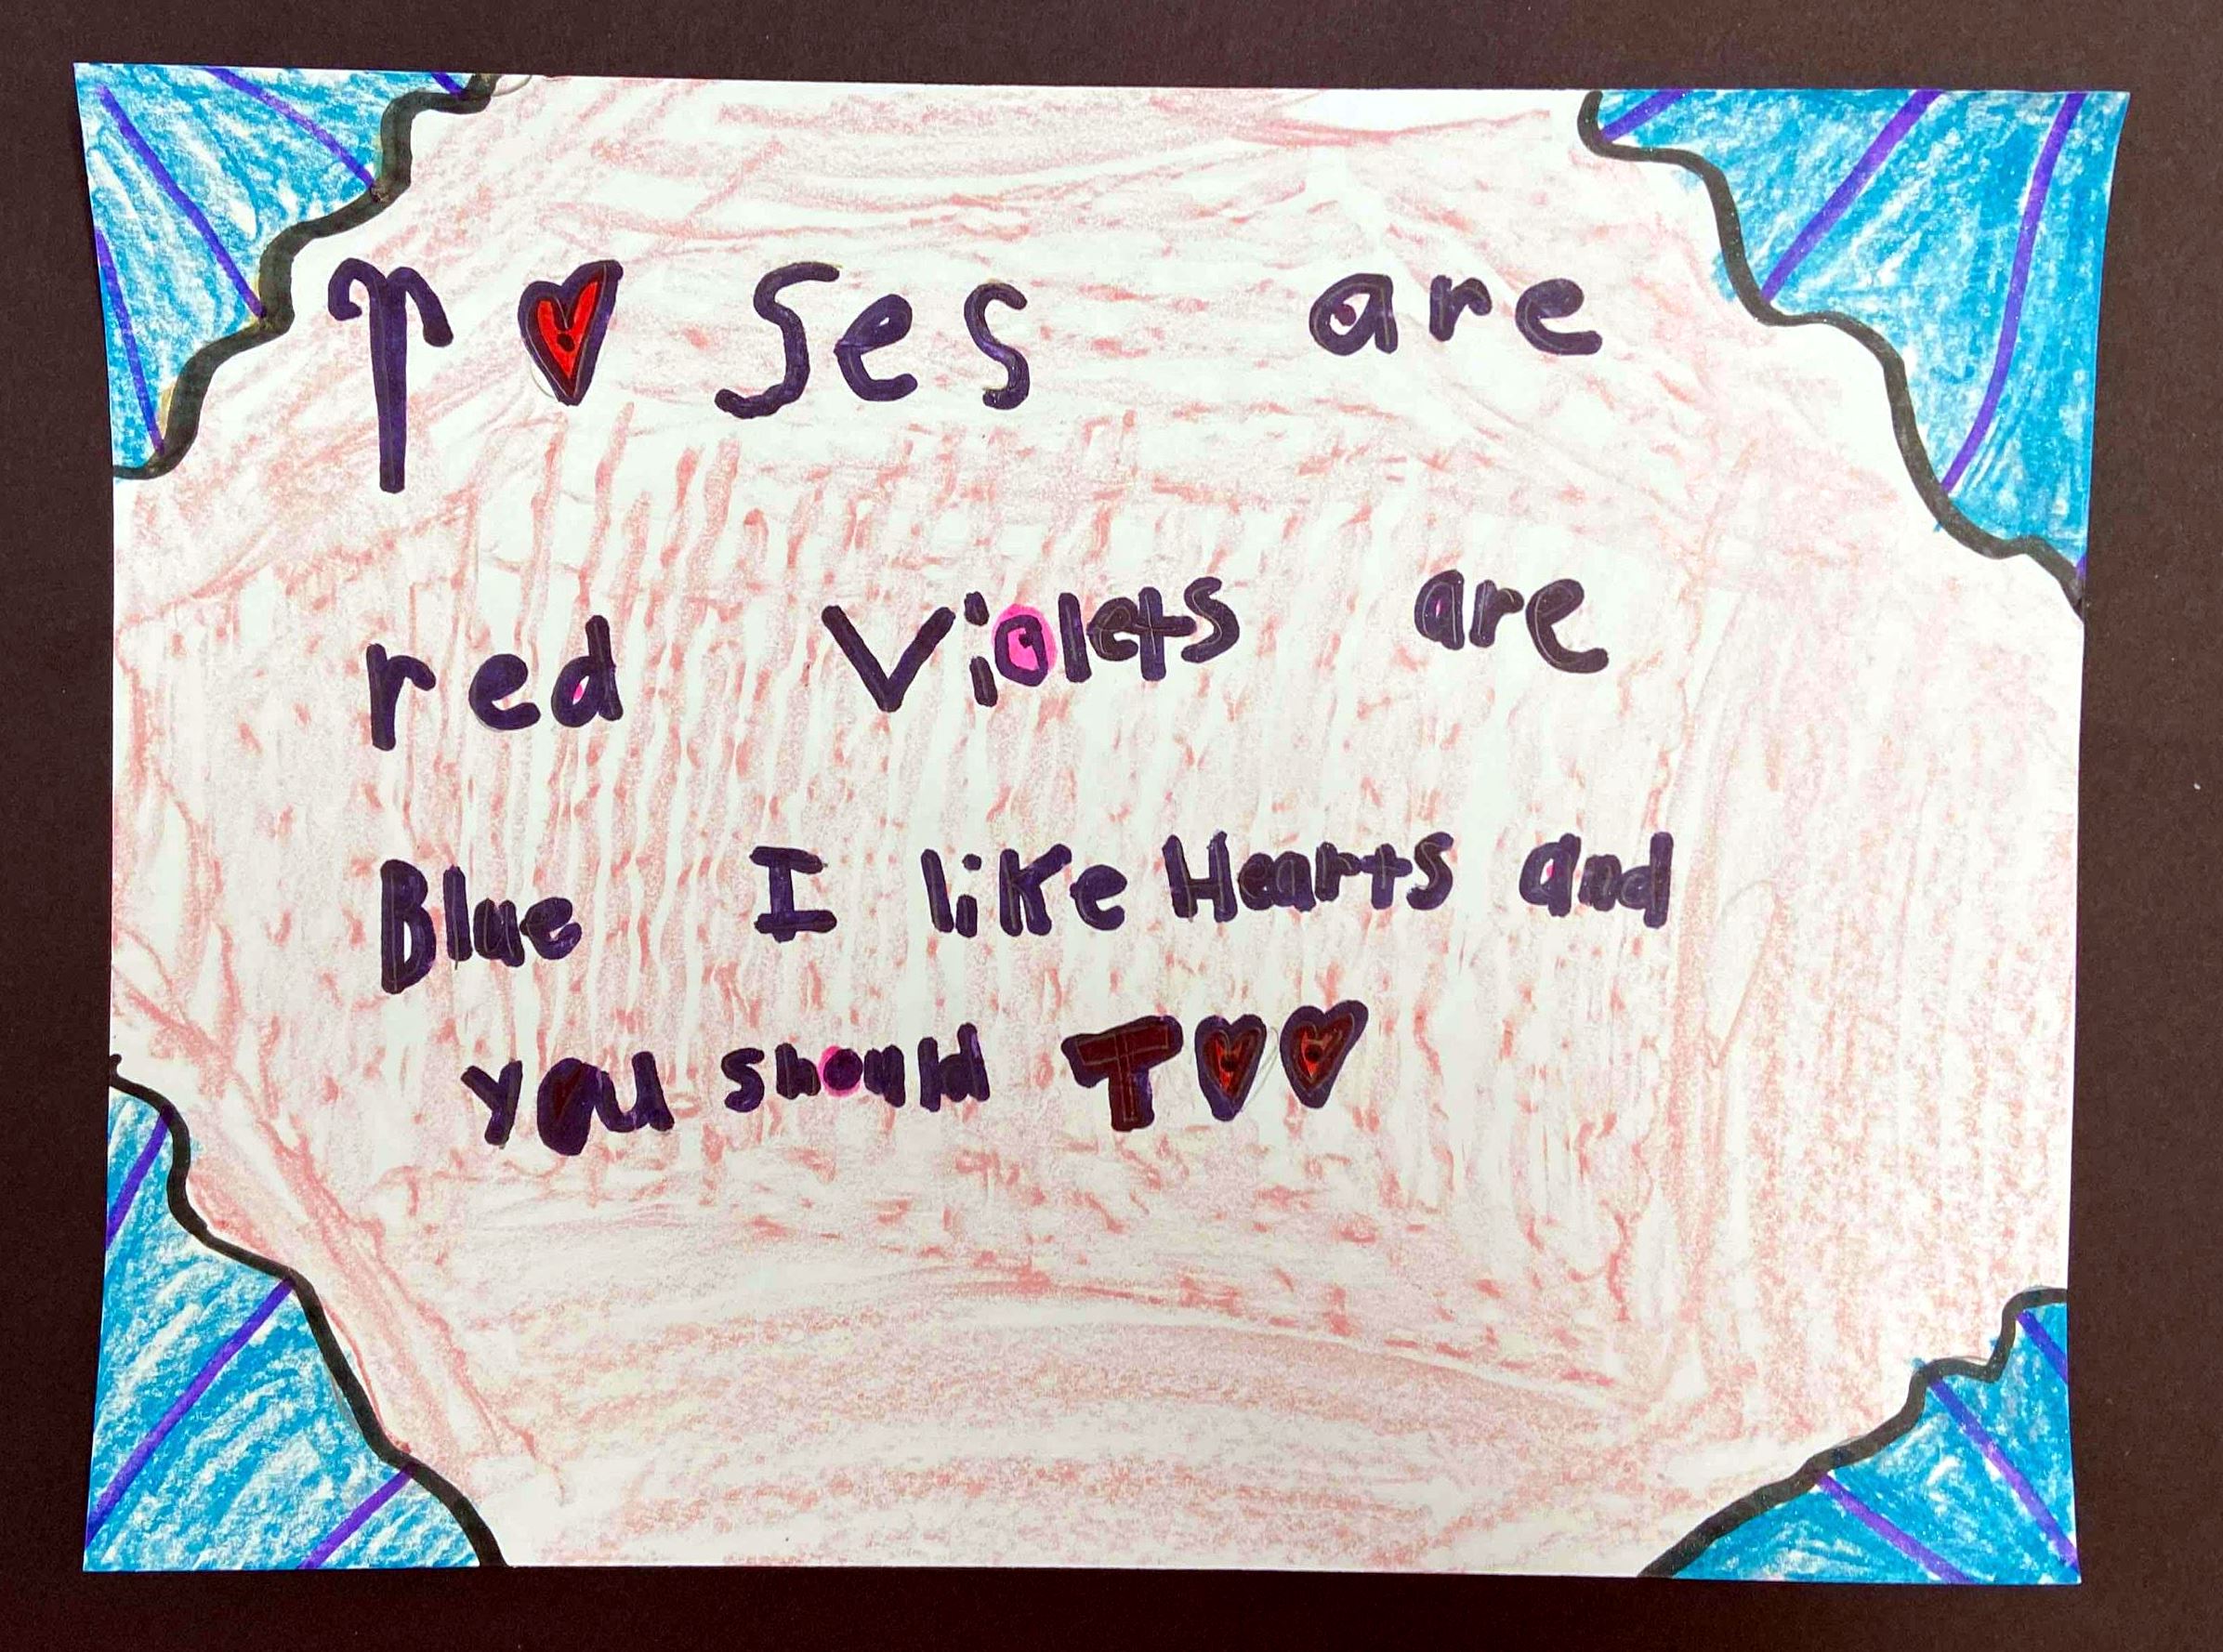 r♥ses are
red Violets are
Blue I like Hearts and
you should T♥♥